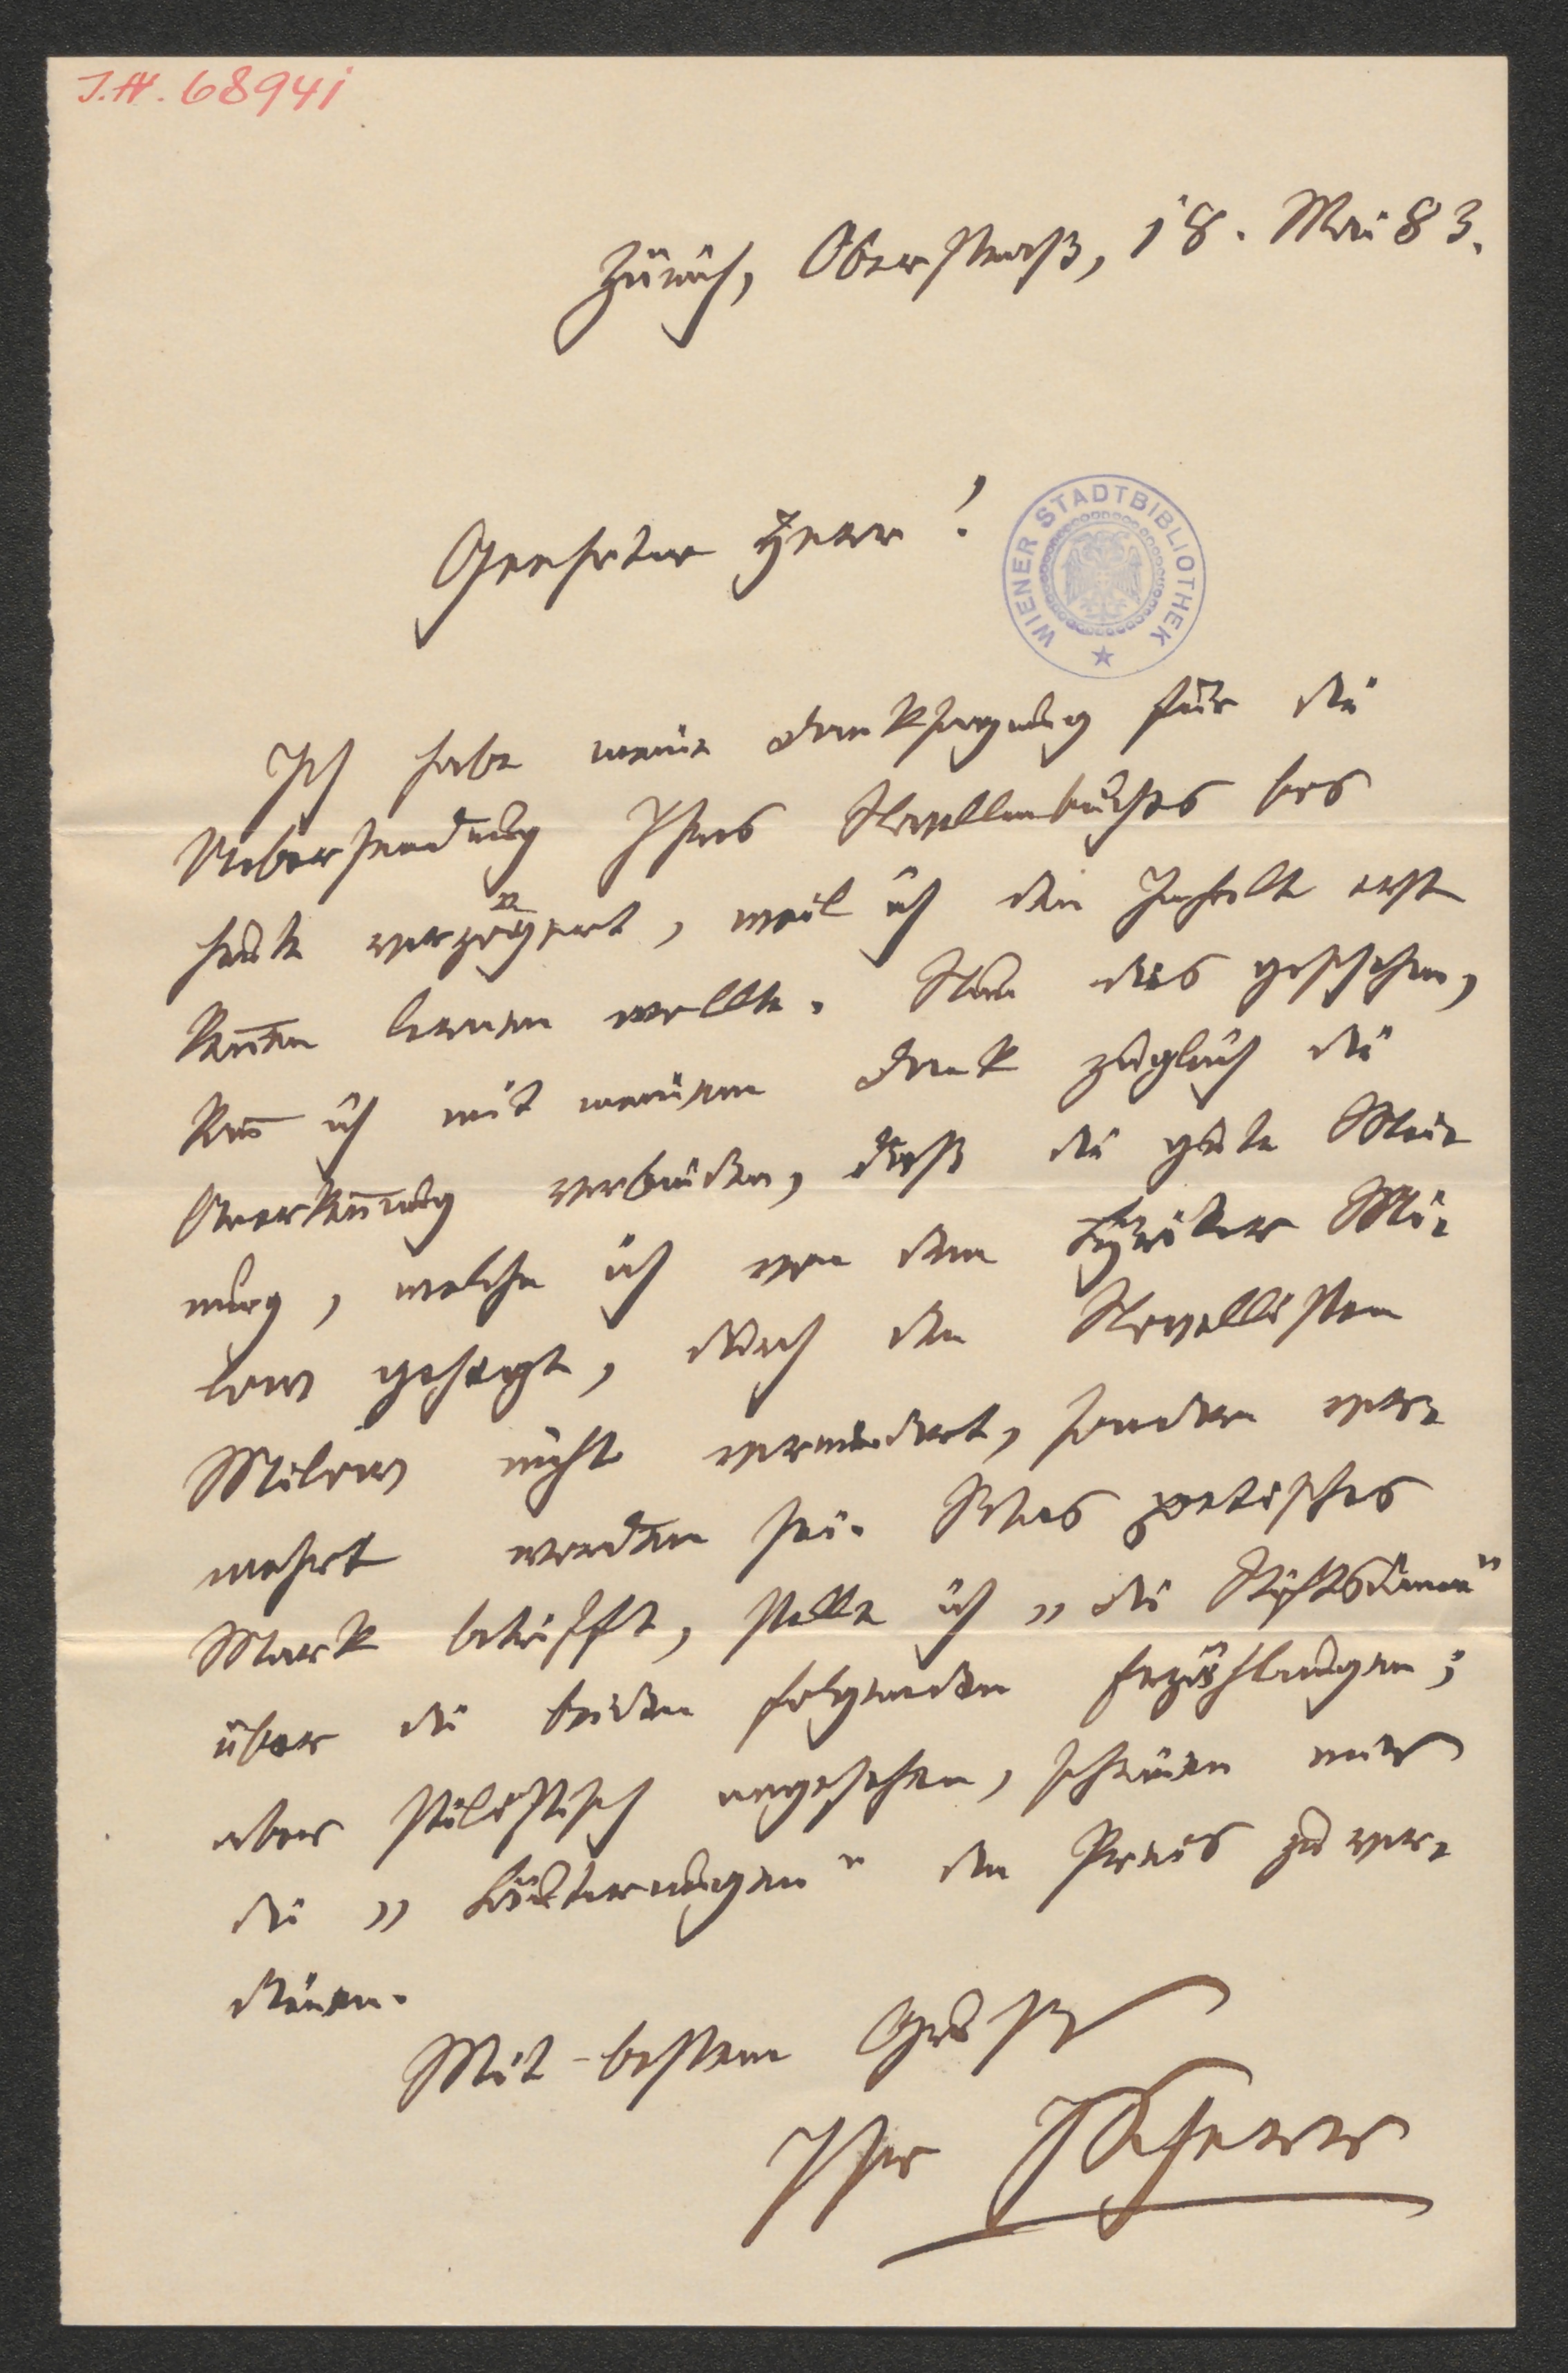 J.N. 68941
Zürich, Oberstraß, 18. Mai 83.
Geehrter Herr!
WIENER STADTBIBLIOTHEK
Ich habe meine Danksagung für die
Uebersendung Ihres Novellenbuches bis
heute verzögert, weil ich den Inhalt erst
kennen lernen wollte. Nun dies geschehen,
kann ich mit meinem Dank zugleich die
Anerkennung verbinden, daß die gute Mei-
nung, welche ich von dem Lyriker Mi-
low gehegt, durch den Novellisten
Milow nicht vermindert, sondern ver-
mehrt worden sei. Was poetisches
Mark betrifft, stelle ich „die Stiftsdame"
über die beiden folgenden Erzählungen;
aber stilistisch angesehen, scheinen mir
die „Läuterungen" den Preis zu ver-
dienen.
Mit bestem Gruß
Ihr JScherr